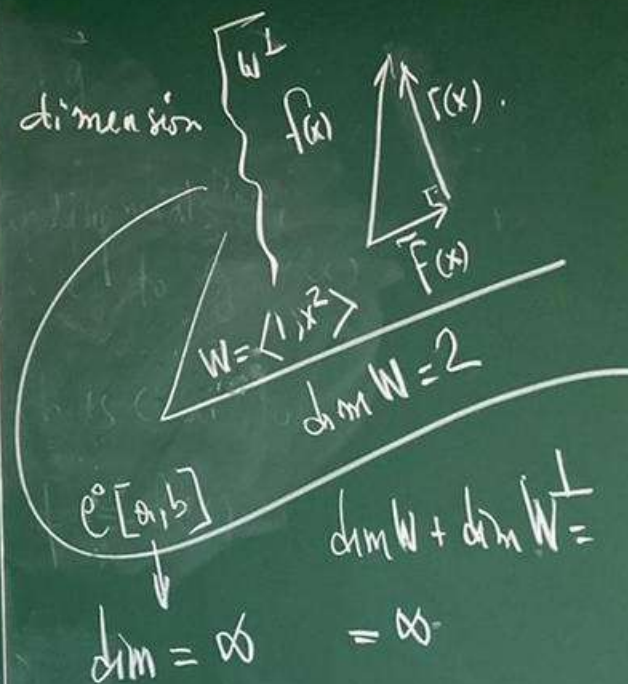 dimensión
W^⊥
f(x)
r(x).
F̄(x)
W=⟨1,x²⟩
dim W=2
e°[a,b]
dim = ∞
dim W + dim W^⊥ =
= ∞